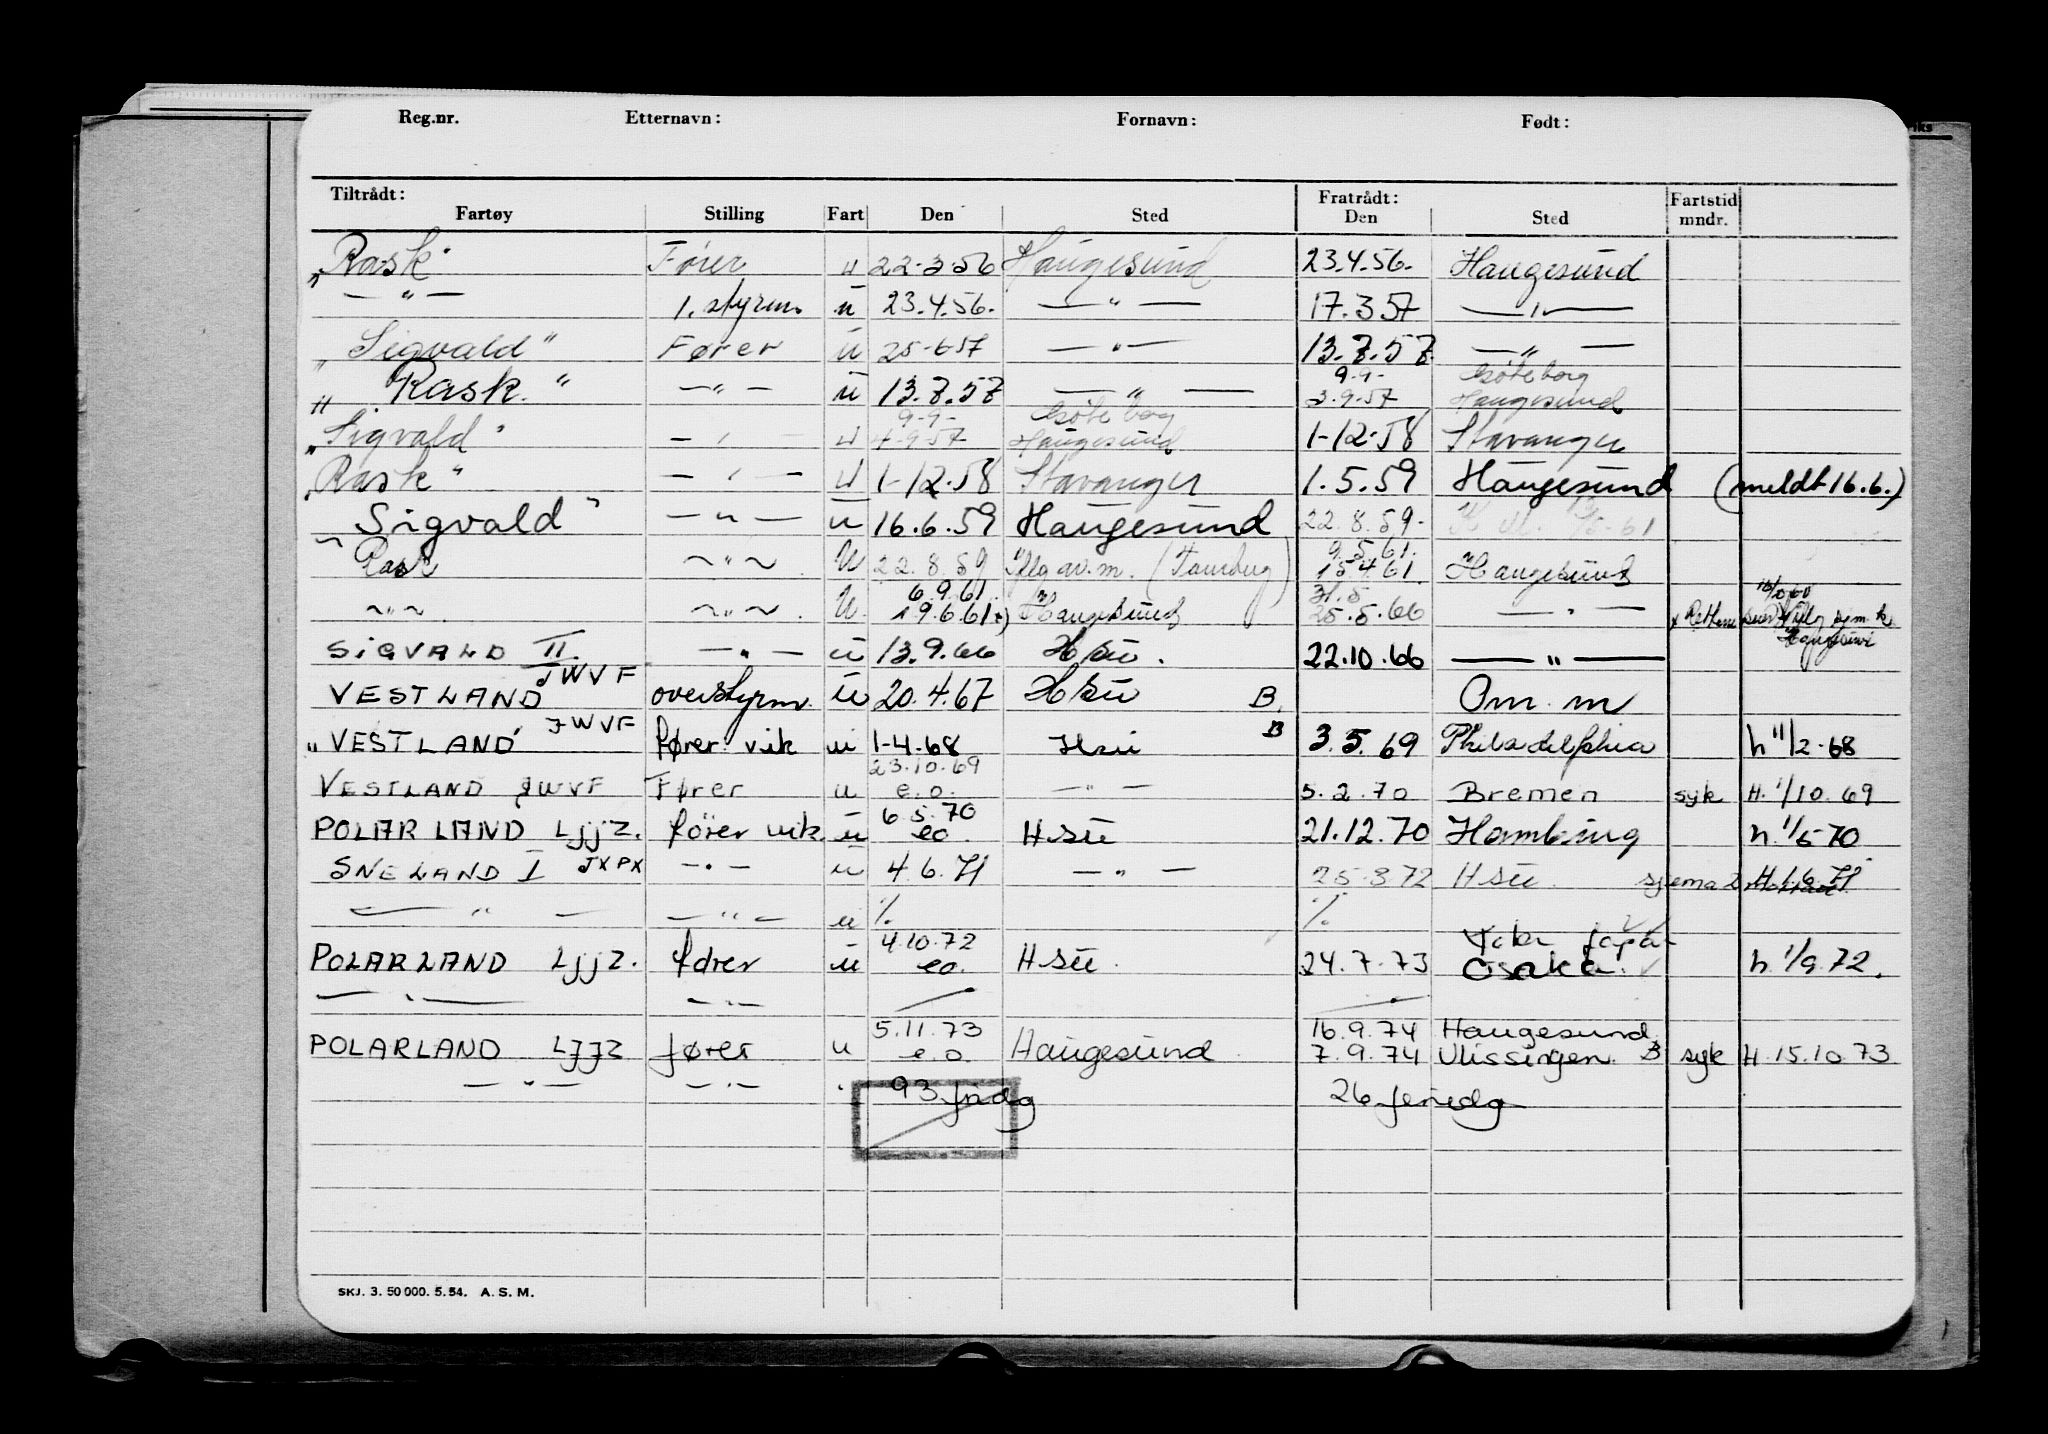 Reg.nr. Etternavn: Fornavn: Født:
Tiltrådt: Fratrådt: Fartstid
Fartøy Stilling Fart Den Sted Den Sted mndr.
"Rask" Fører u 22.3.56 Haugesund 23.4.56. Haugesund
— " — 1. styrm. u 23.4.56. — " — 17.3 57 — " —
"Sigvald" Fører u 25-6 57 — " — 13.7.57 — " —
9.9- Göteborg
"Rask" — " — u 13.7.57 — " — 3.9.57 Haugesund
9-9- Göteborg
"Sigvald" — " — u 4-9-57 Haugesund 1-12-58 Stavanger
"Rask" — " — u 1-12-58 Stavanger 1.5.59 Haugesund (meldt 16.6.)
"Sigvald" — " — u 16.6.59 Haugesund 22.8.59-
9.5.61.
Rask ~ " ~ u 22.8.59 av.m. 15.4.61. Haugesund
6.9.61 31.5
~ " ~ ~ " ~ u 19.6.61 x) Haugesund 25.5.66 — " — x
SIGVALD II — " — u 13.9.66 Hsu. 22.10.66 — " —
JWVF
VESTLAND overstyrm. u 20.4.67 Hsu B. Om. m
JWVF
"VESTLAND" fører vik u 1-4-68 Hsu B 3.5.69 Philadelphia h 11/2-68
23.10.69
VESTLAND JWVF Fører u e.o. — " — 5.2.70 Bremen syk H. 1/10.69
6.5.70
POLARLAND LJJZ. fører vik. u eo. Hsu 21.12.70 Hamburg h. 1/5 70
SNELAND I JXPX — " — u 4.6.71 — " — 25.3.72 Hsu. H. 1.6.71
— " — — " — u %. %.
4.10.72 Japan
POLARLAND LJJZ. fører u eo. Hsu. 24.7.73 Osaka. h. 1/9.72.
— " — — " —
5.11.73 16.9.74 Haugesund
POLARLAND LJJZ fører u e.o. Haugesund 7.9.74 Vlissingen. B syk H. 15.10.73
— " — — " — " 93 fridg 26 feriedg
SKJ. 3. 50 000. 5. 54. A. S. M.